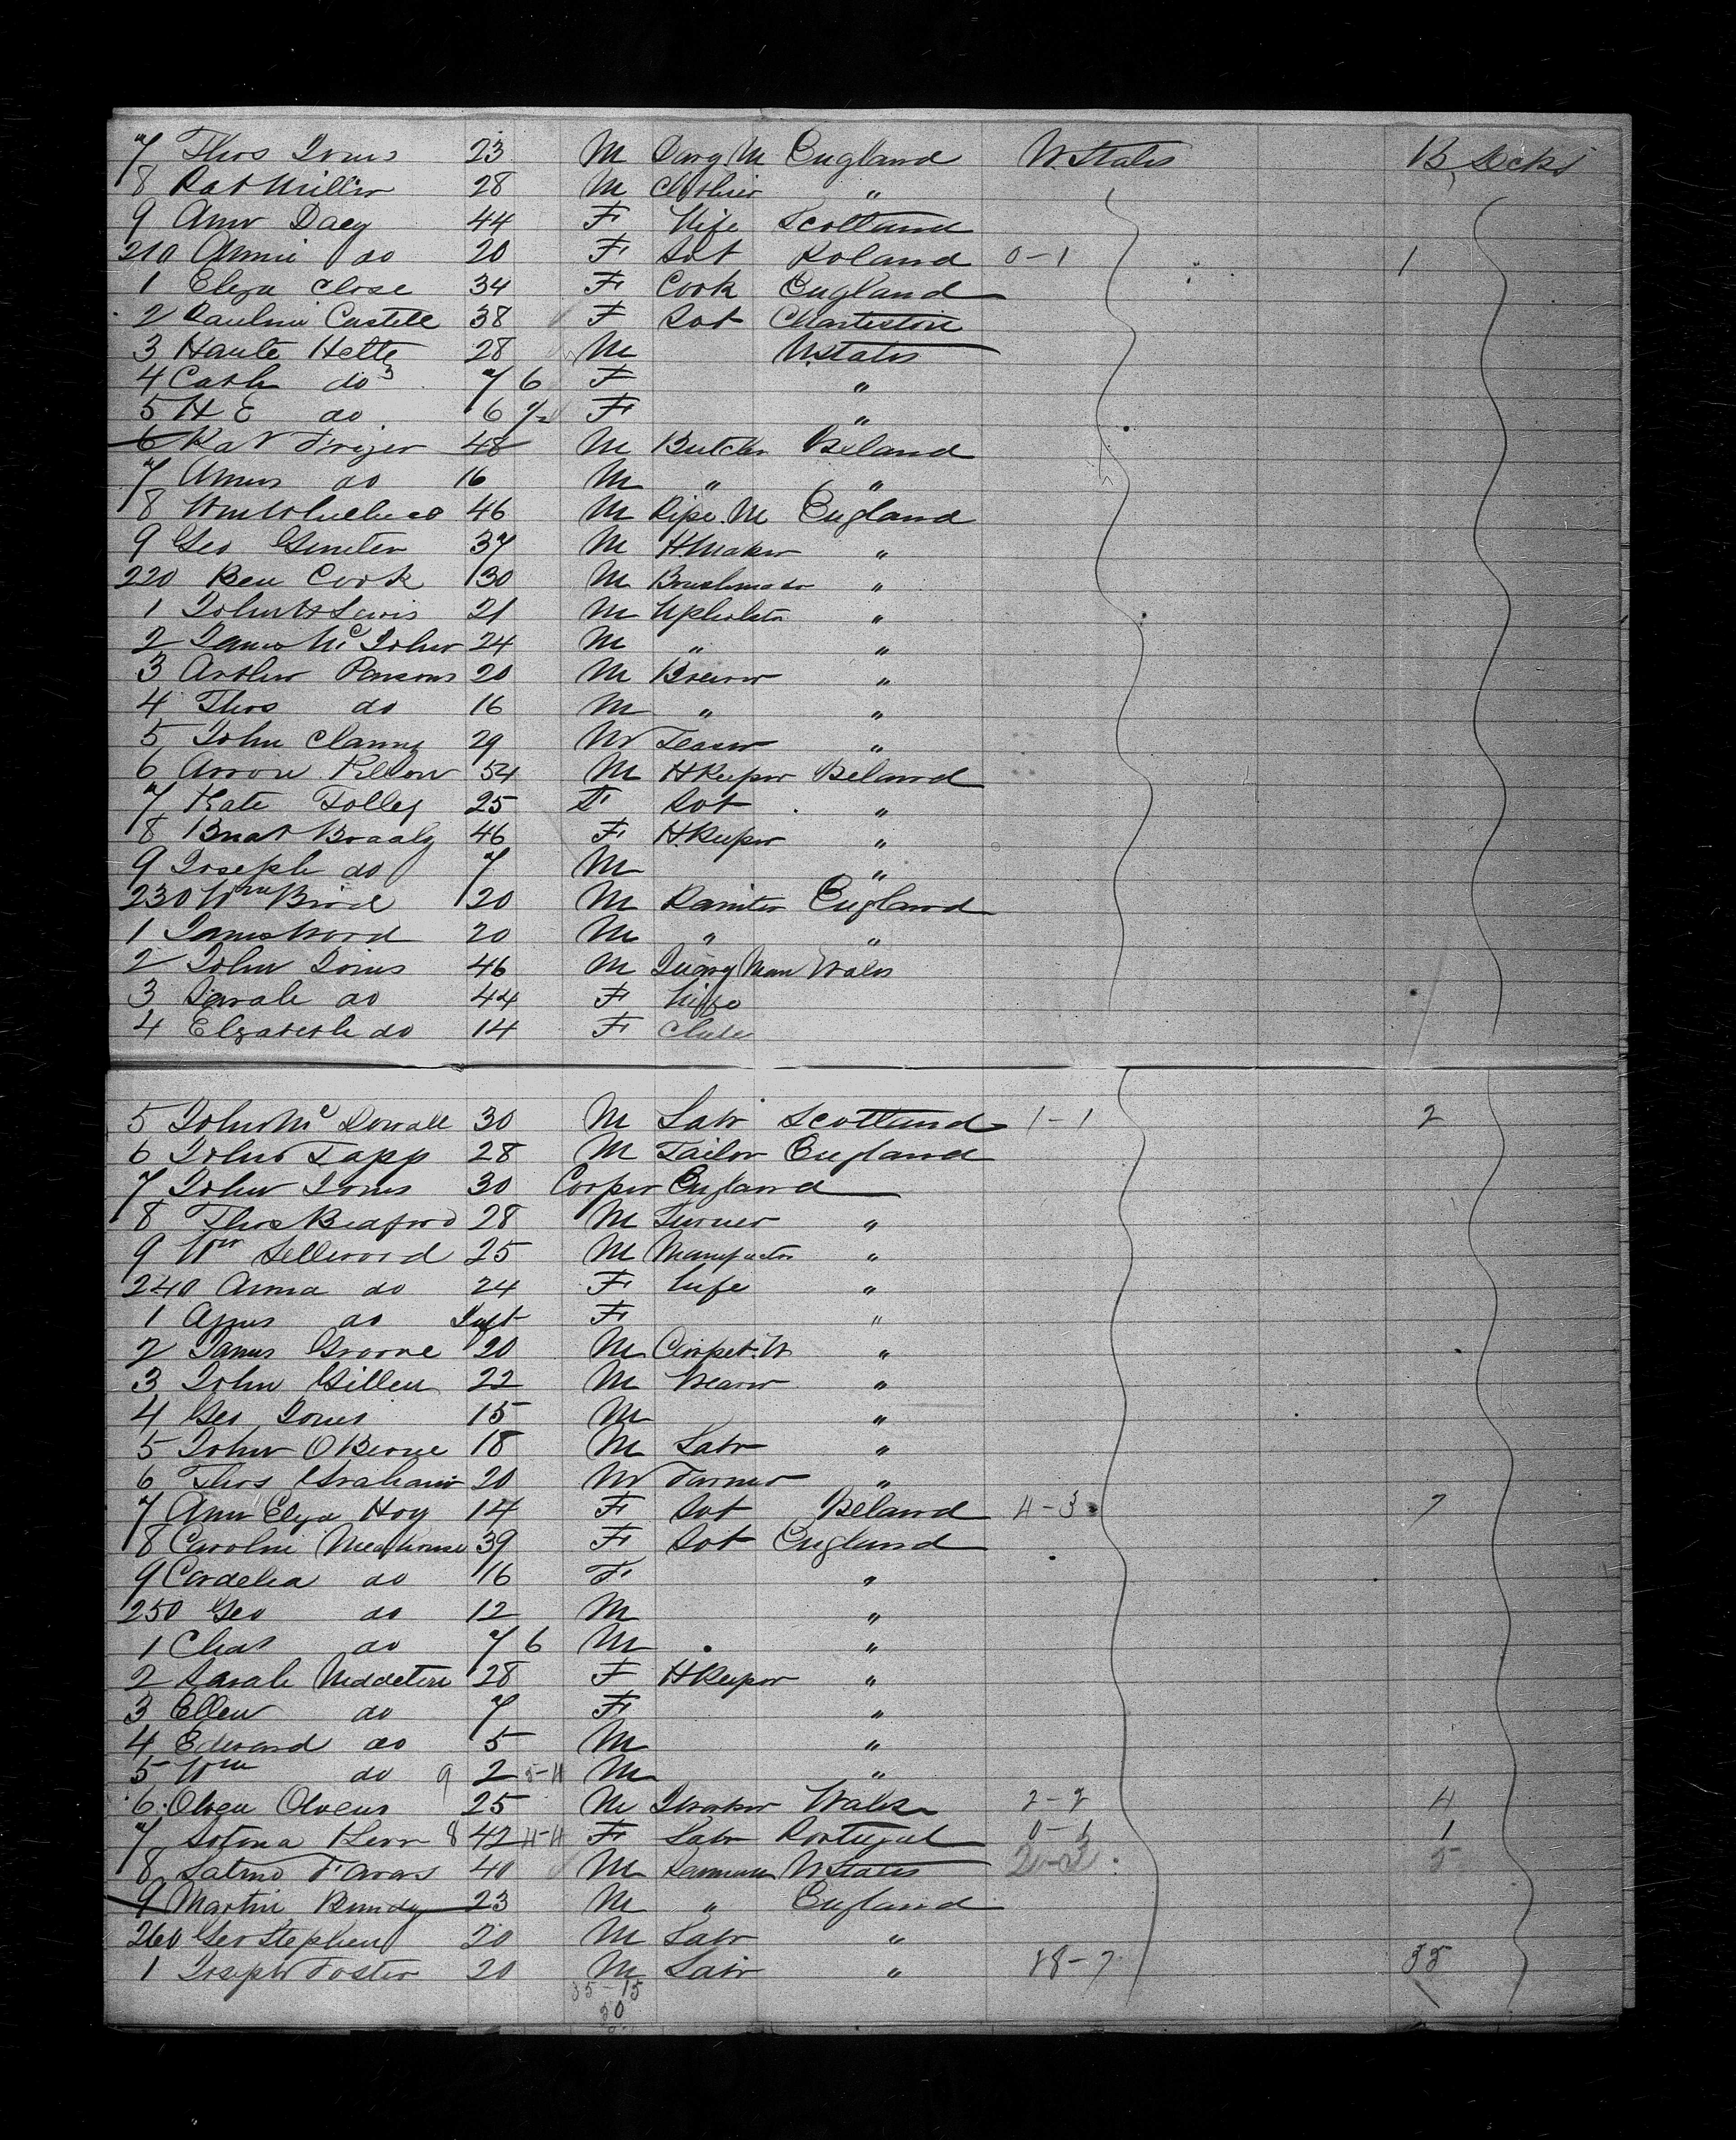 7 Thos Jones 23 M Quary M England U. States B, Decks
8 Pat Miller 28 M Clothier "
9 Ann Dacy 44 F Wife Scotland
210 Annie do 20 F Spt Poland 0-1 1
1 Eliza Close 34 F Cook England
2 Pauline Castell 38 F Spt Charleston
3 Haute Helty 28 M U. States
4 Cath do 3 7 6 F "
5 H E do 6 F "
6 Pat 48 M Butcher Ireland
7 Amos do 16 M " "
8 Wm 46 M Pipe. M England
9 Geo Gunten 37 M H Maker "
220 Ben Cook 30 M Brushmaker "
1 John H Lewis 21 M Upholster "
2 James Mc John 24 M " "
3 Arthur Parsons 20 M Brewer "
4 Thos do 16 M " "
5 John Clanny 29 M "
6 54 M H Keeper Ireland
7 Kate Folley 25 F Spt "
8 46 F H. Keeper "
9 Joseph do 7 M "
230 Wm Bird 20 M Painter England
1 James Wood 20 M " "
2 John Jones 46 M Quary Man Wales
3 Sarah do 44 F Wife
4 Elizabeth do 14 F Child
5 John Mc Dowall 30 M Labr Scotland 1-1 2
6 John Tapp 28 M Tailor England
7 John Jones 30 Cooper England
8 Thos Bedford 28 M Turner "
9 Wm Sellwood 25 M Manufactor "
240 Anna do 24 F Wife "
1 Agnes do Inft F "
2 James Groove 20 M Carpet. W "
3 John Gillen 22 M Weaver "
4 Geo Jones 15 M "
5 John O Beirne 18 M Labr "
6 Thos Graham 20 M Farmer "
7 Ann Eliza Hoy 14 F Spt Ireland 4-3 7
8 Caroline 39 F Spt England
9 Cordelia do 16 F "
250 Geo do 12 M "
1 Chas do 7 6 M "
2 Sarah Middleton 28 F H Keeper "
3 Ellen do 7 F "
4 Edward do 5 M "
5 Wm do 9 2 5-4 M "
6 Owen Owens 25 M Wales 2-2 4
7 8 42 4-4 F Labr Portugal 0-1 1
8 40 M U States 2-3 5
9 Martin Bundy 23 M " England
260 Geo Stephen 20 M Labr "
1 Joseph Foster 20 M Labr " 28-7 35
35-15
20